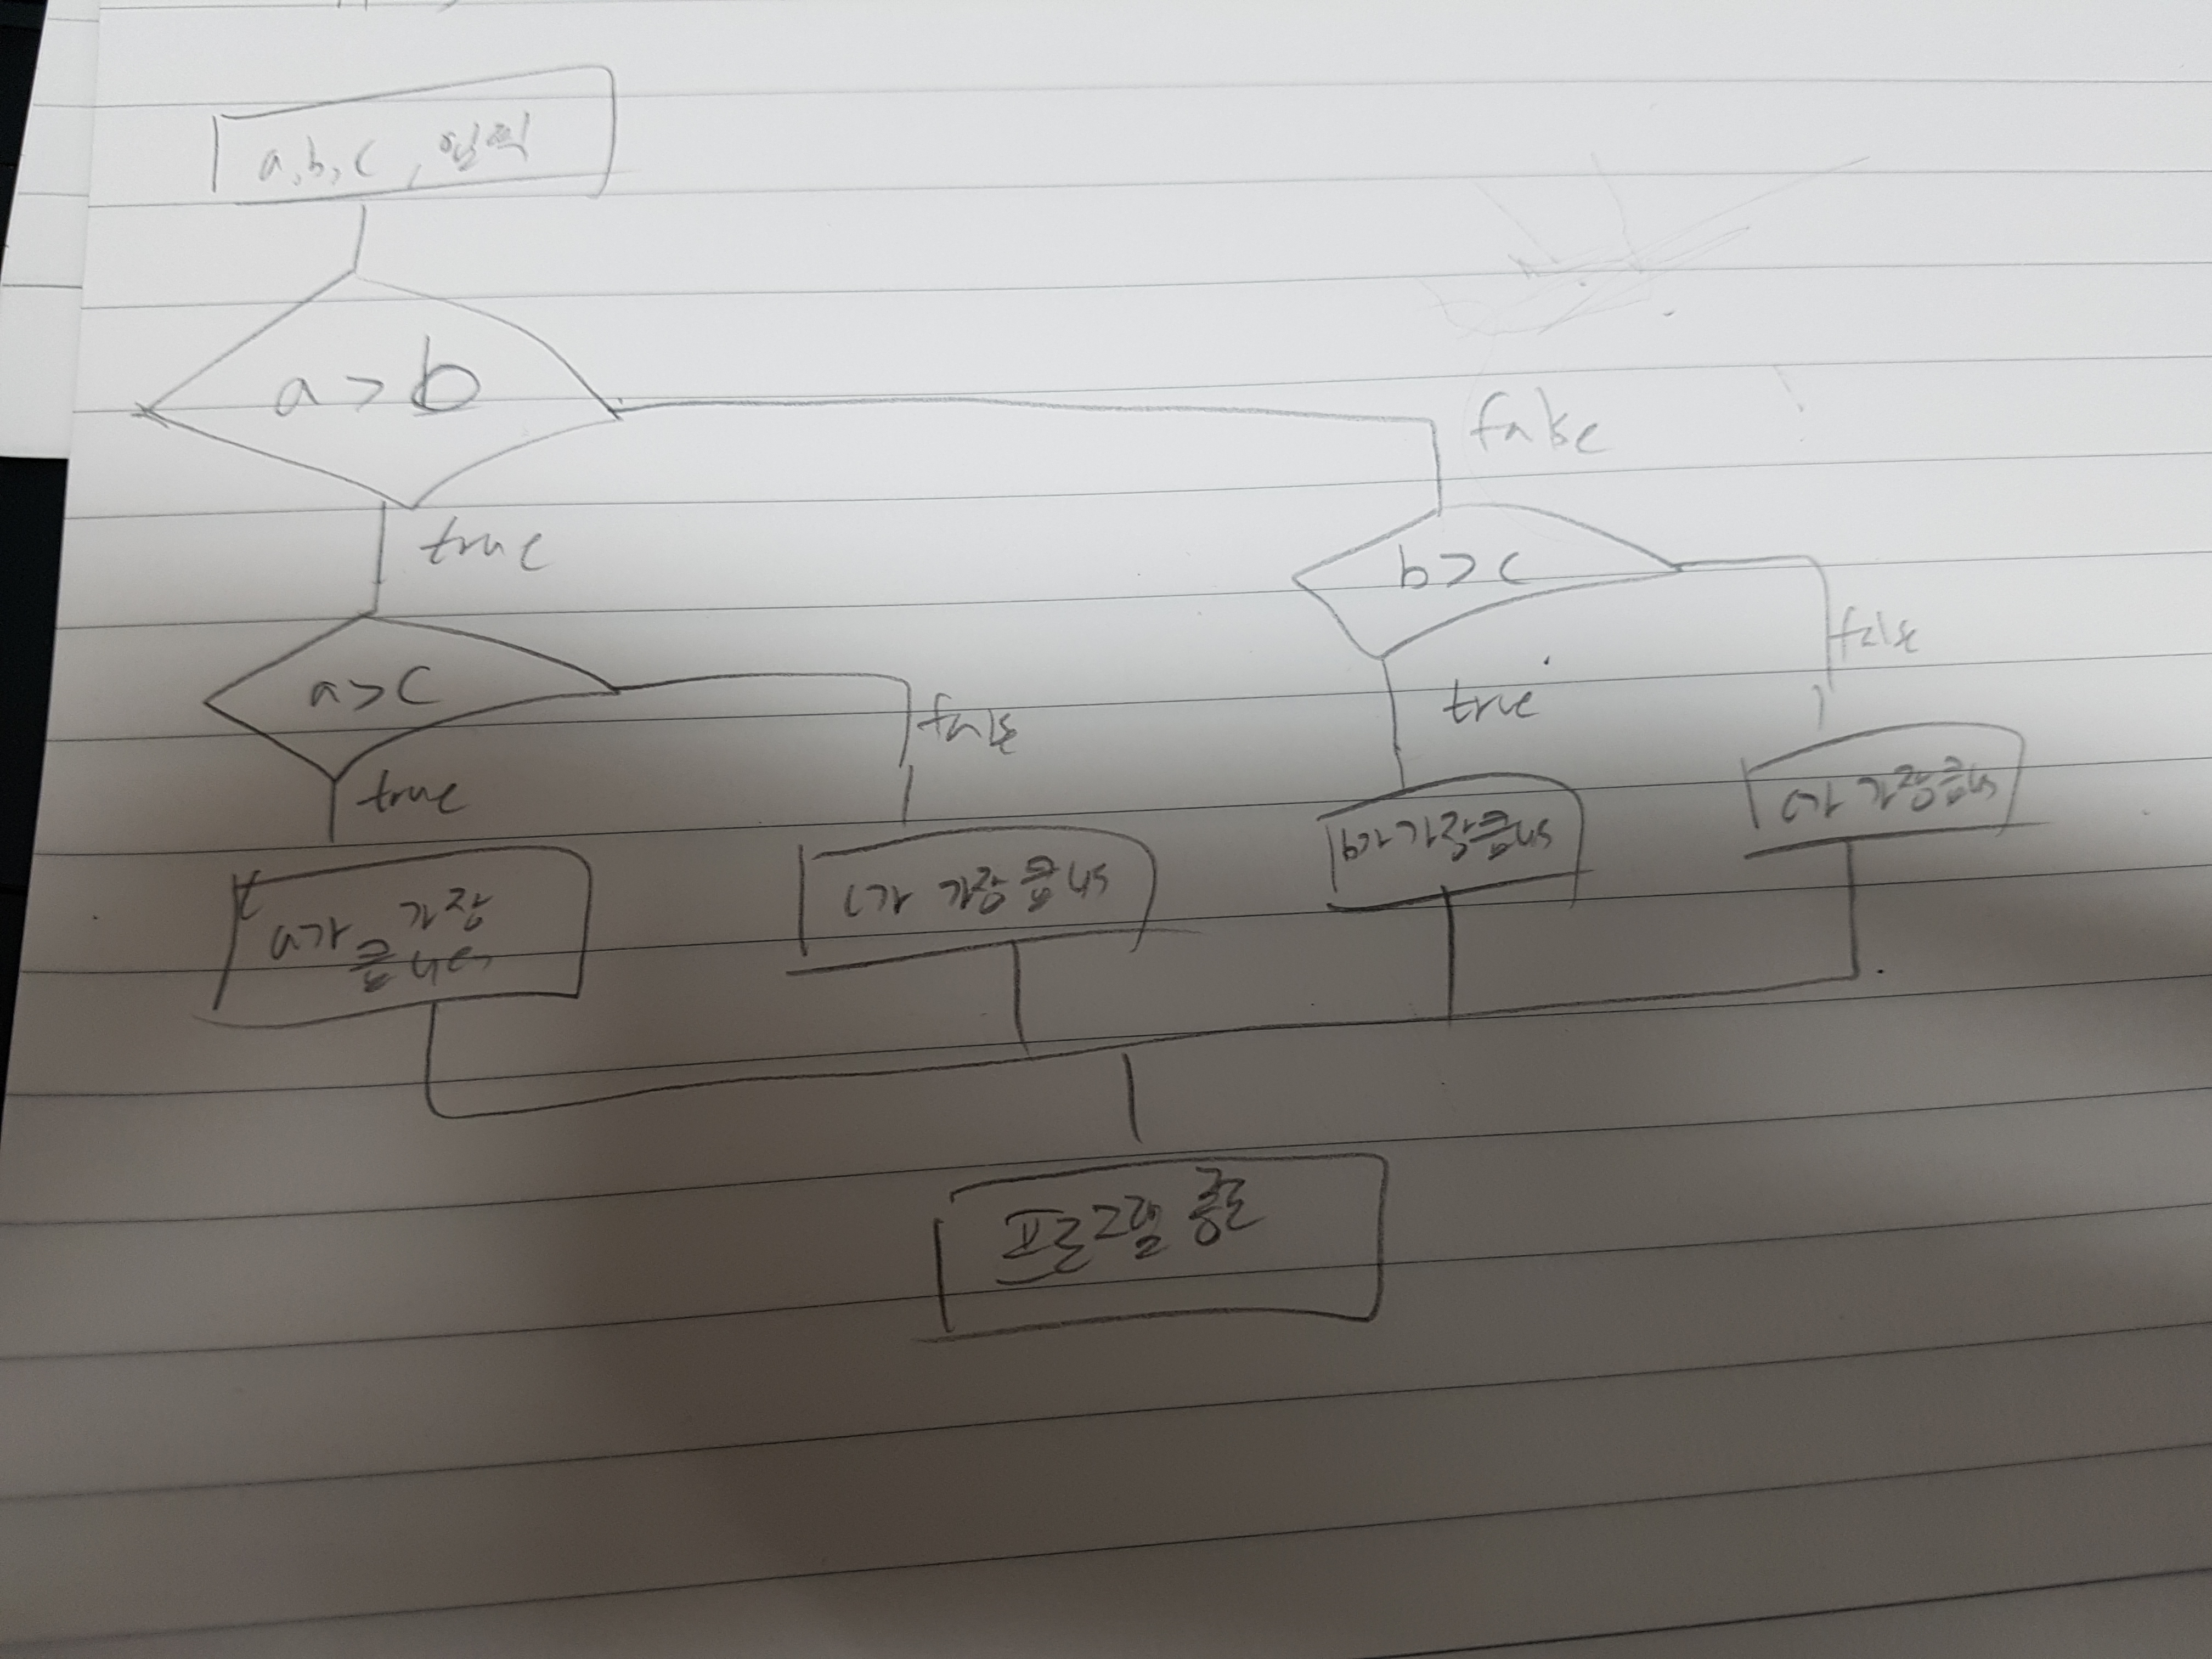 a, b, c, 입력
a > b
false
true
b > c
false
a > c
true
false
true
c가 가장 큽니다
b가 가장 큽니다
c가 가장 큽니다
a가 가장
큽니다
프로그램 종료